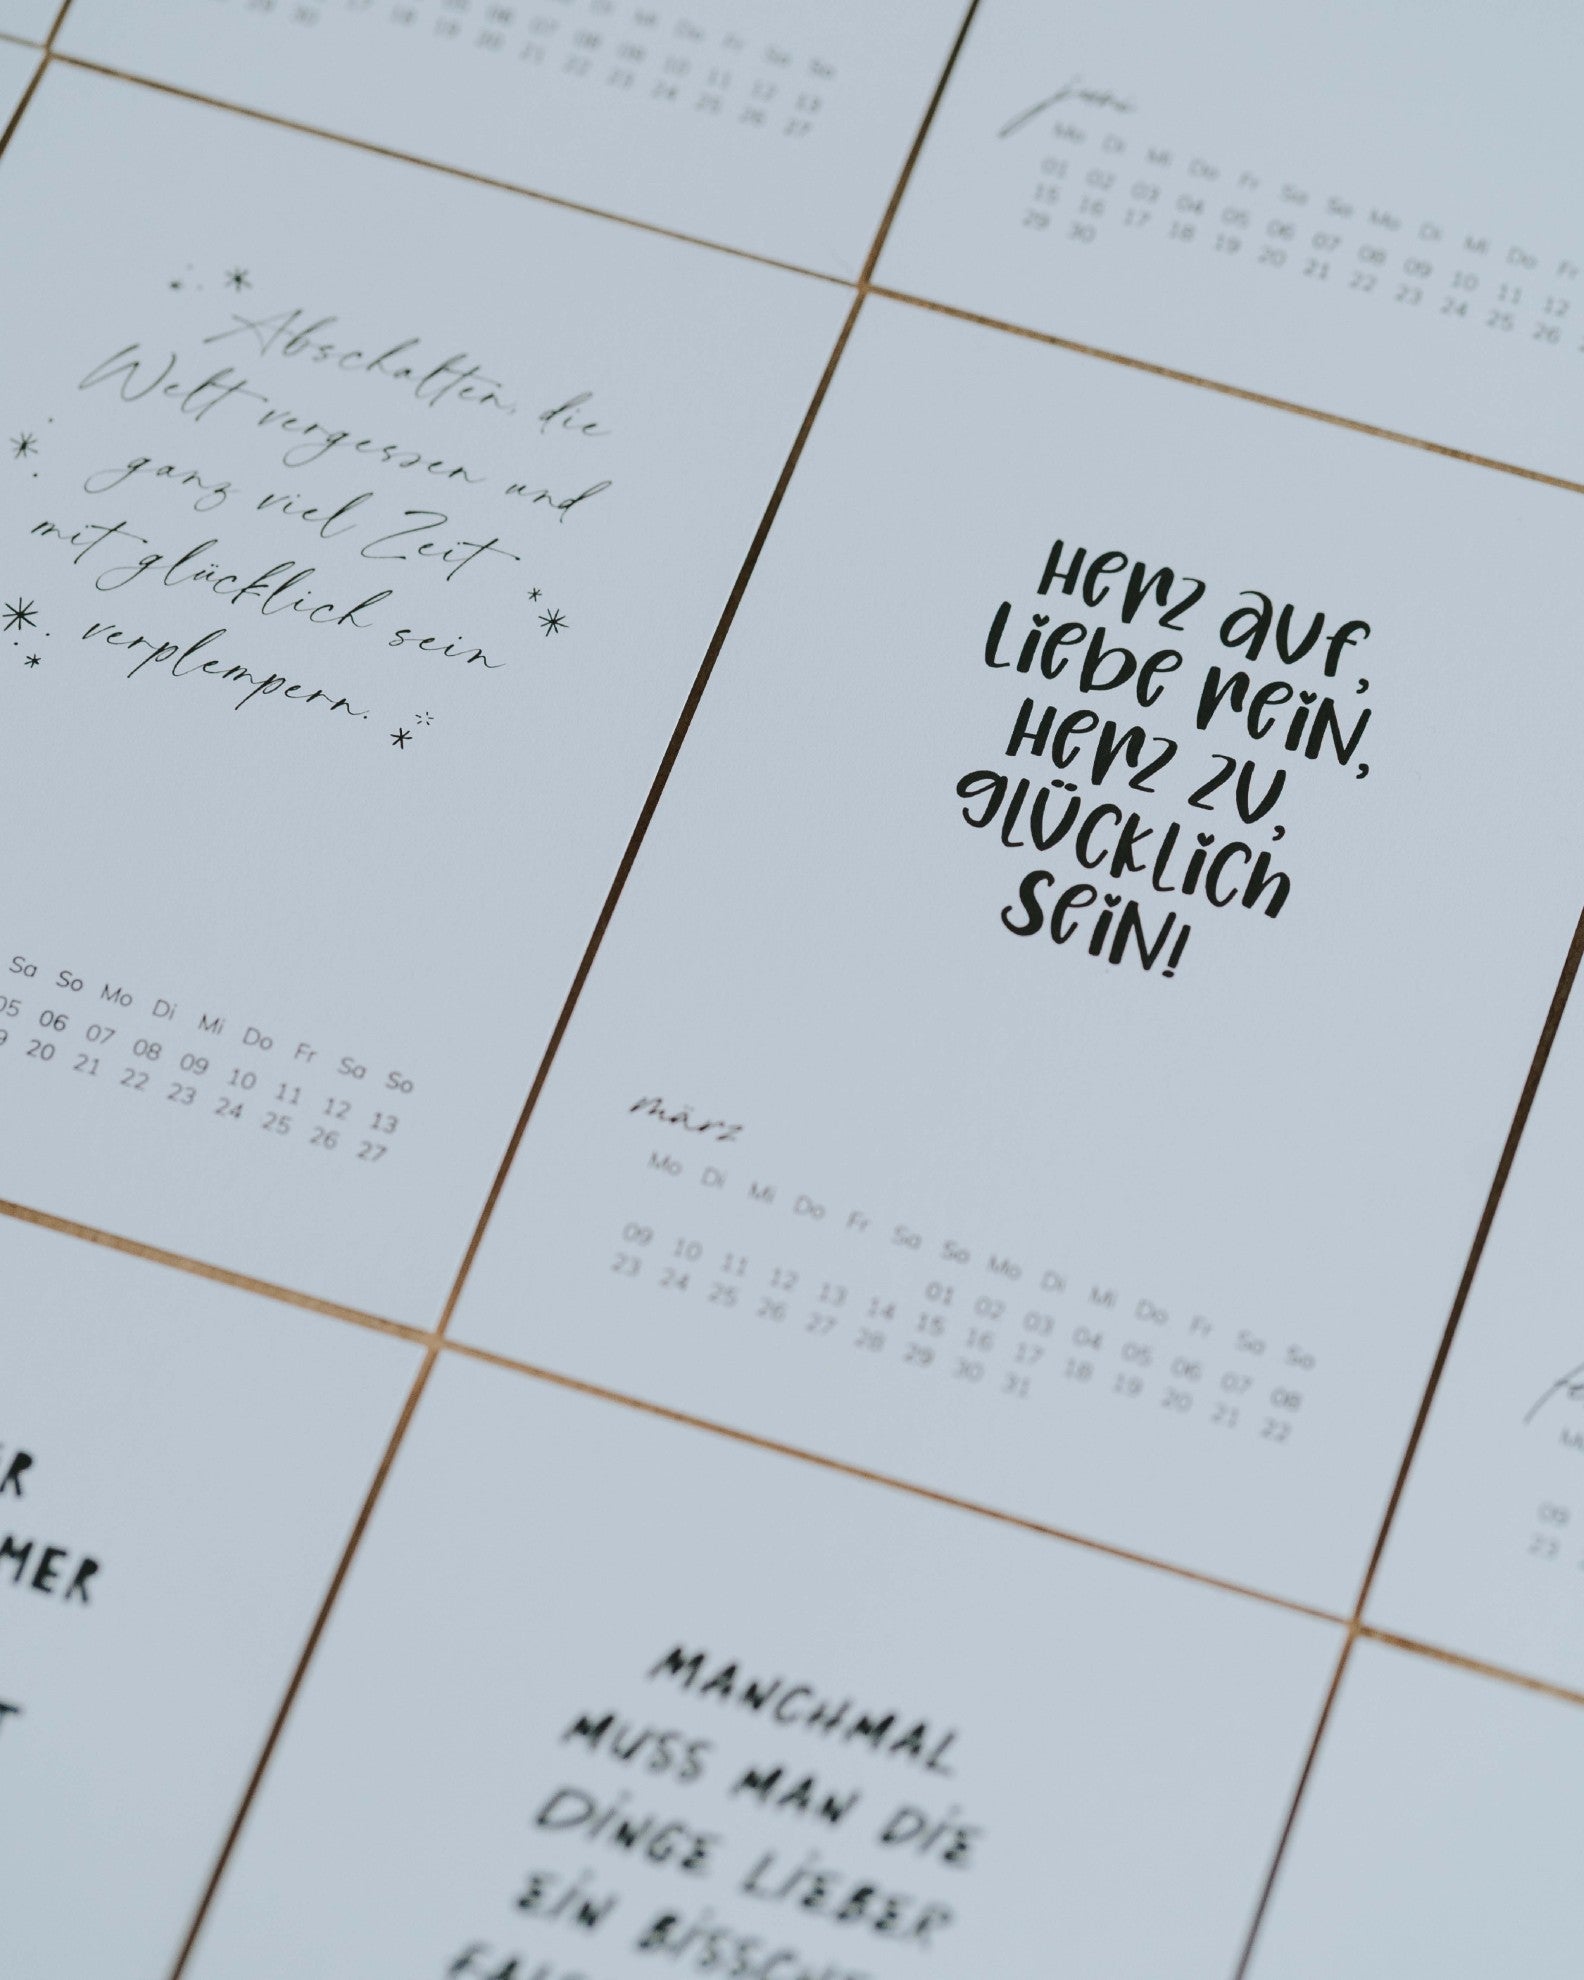 Mi Do Fr Sa So
06 07 08 09 10 11 12 13
17 18 19 20 21 22 23 24 25 26 27
29 30
juni
Mo Di Mi Do Fr Sa So Mo Di Mi Do Fr
01 02 03 04 05 06 07 08 09 10 11 12
15 16 17 18 19 20 21 22 23 24 25 26
29 30
Abschalten, die
Welt vergessen und
ganz viel Zeit
mit glücklich sein
verplempern.
Sa So Mo Di Mi Do Fr Sa So
05 06 07 08 09 10 11 12 13
20 21 22 23 24 25 26 27
Herz auf,
Liebe rein,
Herz zu,
glücklich
sein!
märz
Mo Di Mi Do Fr Sa So Mo Di Mi Do Fr Sa So
01 02 03 04 05 06 07 08
09 10 11 12 13 14 15 16 17 18 19 20 21 22
23 24 25 26 27 28 29 30 31
09
23
MER
MANCHMAL
MUSS MAN DIE
DINGE LIEBER
EIN